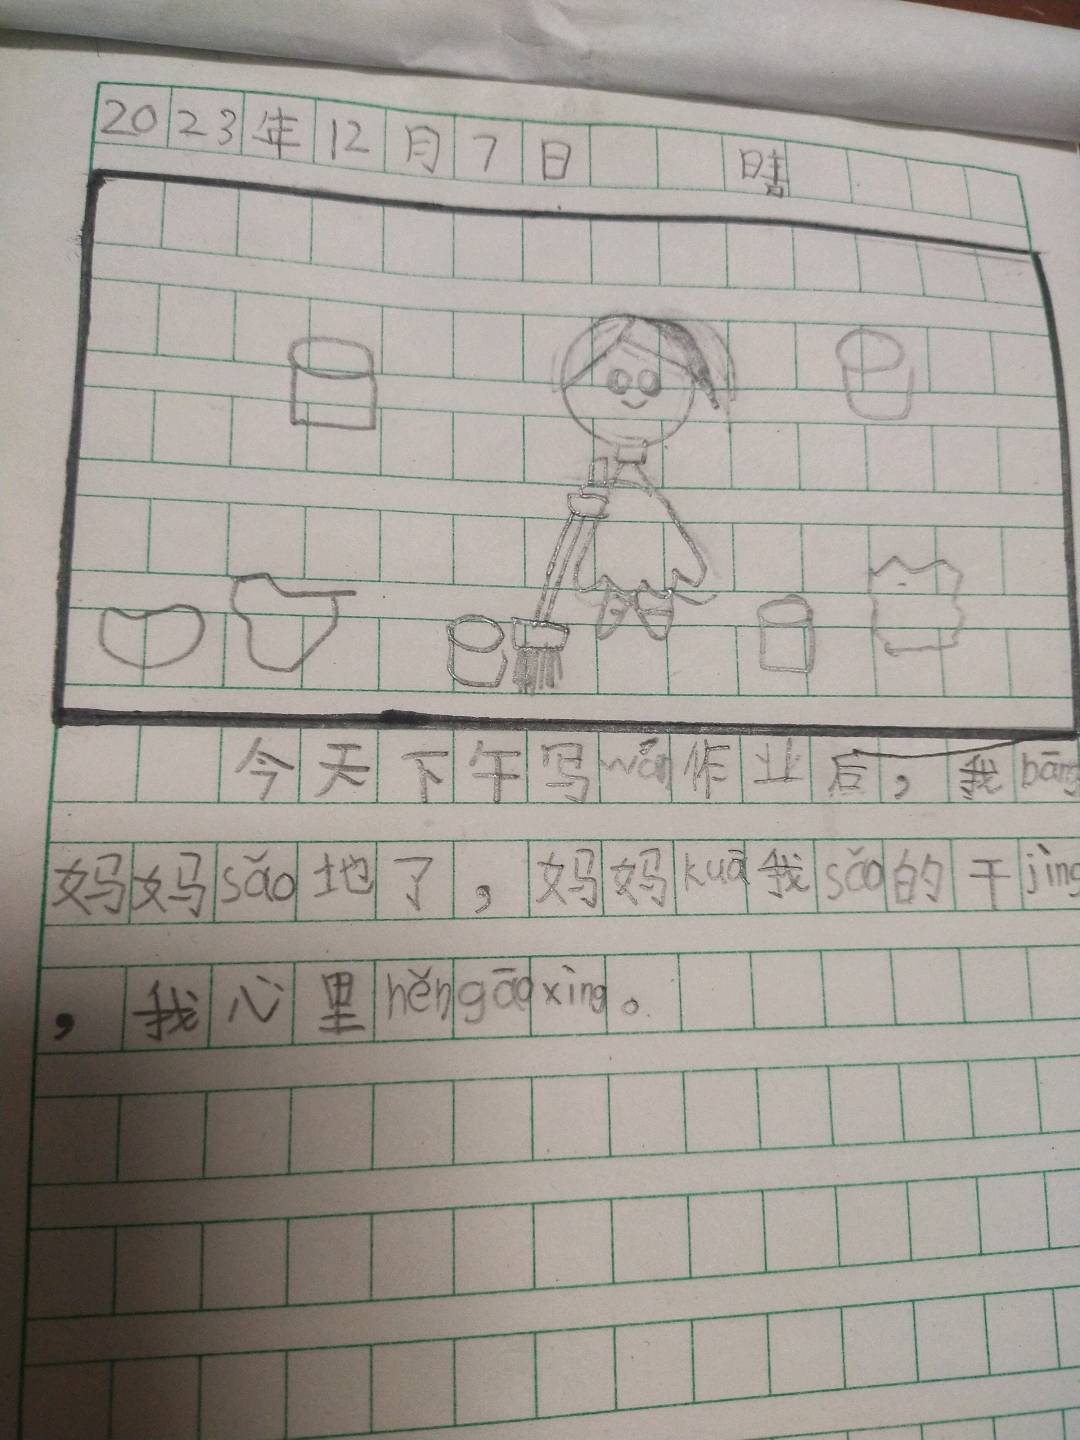 2023年12月7日 晴
今天下午写wán作业后，我bāng
妈妈sǎo地了，妈妈kuā我sǎo的干jìng
，我心里hěngāoxìng。